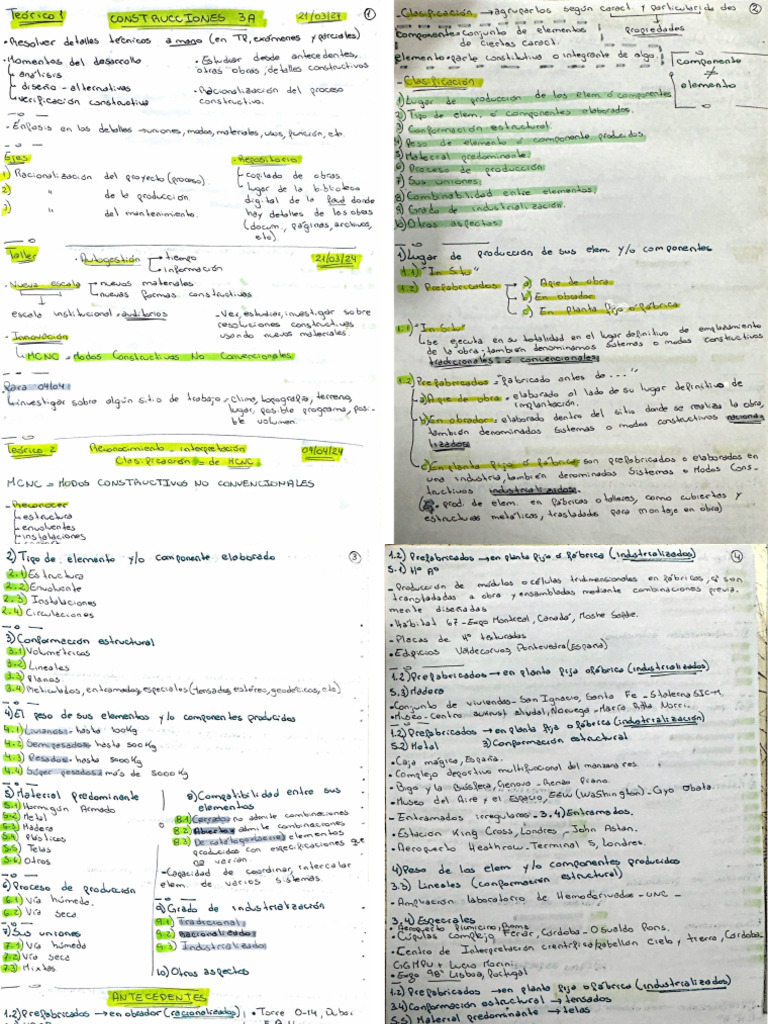 Teórico 1
CONSTRUCCIONES 3A
21/03/24
1
• Resolver detalles técnicos a mano (en TP, exámenes y parciales)
• Momentos del desarrollo
análisis
diseño - alternativas
verificación constructiva
• Estudiar desde antecedentes,
otras obras, detalles constructivos
• Racionalización del proceso
constructivo.
- Énfasis en los detalles → uniones, modos, materiales, usos, función, etc.
Ejes
1) Racionalización del proyecto (proceso)
2) " de la producción.
3) " del mantenimiento.
• Repositorio
copilado de obras.
lugar de la biblioteca
digital de la faud donde
hay detalles de los obras
(docum., páginas, archivos,
etc)
Taller
• Autogestión → tiempo
→ información
21/03/24
• Nueva escala → nuevos materiales
→ nuevas formas constructivas
escala institucional - auditorios
- Ver, estudiar, investigar sobre
resoluciones constructivas
usando nuevos materiales.
• Innovación
MCNC = Modos Constructivos No Convencionales.
Para 04/04
investigar sobre algún sitio de trabajo - clima, topografía, terreno,
lugar, posible programa, posi-
ble volumen.
Teórico 2
Reconocimiento - interpretación
Clasificación = de MCNC
04/04/24
MCNC = MODOS CONSTRUCTIVOS NO CONVENCIONALES
- Reconocer
estructura
envolventes
instalaciones
2
- Clasificación → agruparlos según caract. y particularida des
propiedades
Componente: conjunto de elementos
de ciertas caract.
elemento: parte constitutiva o integrante de algo.
componente
≠
elemento
- Clasificación
1) Lugar de producción de los elem. ó componentes
2) Tipo de elem. ó componentes elaborados.
3) Conformación estructural.
4) Peso de elemento ó componente producidos.
5) Material predominante.
6) Proceso de producción
7) Sus uniones
8) Combinabilidad entre elementos.
9) Grado de industrialización.
10) Otros aspectos
1) Lugar de producción de sus elem. y/o componentes
1.1) "In Situ"
1.2) Prefabricados
a) A pie de obra
b) En obrador
c) En planta fija o fábrica
1.1) "In Situ"
se ejecuta en su totalidad en el lugar definitivo de emplazamiento
de la obra; también denominamos sistemas o modos constructivos
tradicionales ó convencionales.
1.2) Prefabricados = "fabricado antes de ..."
a) A pie de obra: elaborado al lado de su lugar definitivo de
implantación.
b) En obrador: elaborado dentro del sitio donde se realiza la obra,
también denominados sistemas o modos constructivos raciona
lizados
c) En planta fija o fábrica: son prefabricados o elaborados en
una industria, también denominados Sistemas o Modos Cons-
tructivos industrializados.
prod. de elem. en fábricas o talleres, como cubiertas y
estructuras metálicas, trasladados para montaje en obra)
3
2) Tipo de elemento y/o componente elaborado
2.1) Estructura
2.2) Envolvente
2.3) Instalaciones
2.4) Circulaciones
3) Conformación estructural
3.1) Volumétricos
3.2) Lineales
3.3) Planos
3.4) Reticulados, entramados, especiales (tensados, estéreo, geodéticos, etc)
4) El peso de sus elementos y/o componentes producidos
4.1) Livianos - hasta 100 kg
4.2) Semipesados - hasta 500 kg
4.3) Pesados - hasta 5000 kg
4.4) Súper pesados - más de 5000 kg
5) Material predominante
5.1) Hormigón Armado
5.2) Metal
5.3) Madera
5.4) Plásticos
5.5) Telas
5.6) Otros
6) Proceso de producción
6.1) Vía húmeda.
6.2) Vía seca
7) Sus uniones
7.1) Vía húmeda
7.2) Vía seca
7.3) Mixtas
8) Compatibilidad entre sus
elementos
8.1) Cerrados no admite combinaciones
8.2) Abiertos admite combinaciones
8.3) De catálogo (series) elementos
producidos con especificaciones que
no varían
- Capacidad de coordinar, intercalar
elem. de varios sistemas.
9) Grado de industrialización
9.1) Tradicional
9.2) Racionalizados
9.3) Industrializados
10) Otros aspectos
ANTECEDENTES
1.2) Prefabricados → en obrador (racionalizados)
• Torre O-14, Dubai
4
1.2) Prefabricados → en planta fija ó fábrica (industrializados)
5.1) Hº Aº
- Producción de módulos o células tridimensionales en fábricas, q' son
transladadas a obra y ensambladas mediante combinaciones previa
mente diseñadas
• Hábitat 67 - Expo Montreal, Canadá, Moshe Safde.
- Placas de Hº texturadas
• Edificios Valdecorvos, Pontevedra (España)
1.2) Prefabricados → en planta fija o fábrica (industrializados)
5.3) Madera
• Conjunto de viviendas - San Ignacio, Santa Fe -
1.2) Prefabricados → en planta fija o fábrica (industrialización)
5.2) Metal 3) Conformación estructural
• Caja mágica, España.
• Complejo deportivo multifuncional del manzanares
• Bigo y la Biosfera, Genova - Renzo Piano.
• Museo del Aire y el Espacio, EEUU (Washington) - Gyo Obata.
- Entramados irregulares - 3.4) Entramados.
• Estación King Cross, Londres - John
• Aeropuerto Heathrow - Terminal 5, Londres.
4) Peso de los elem y/o componentes producidos
3.3) Lineales (conformación estructural)
- Ampliación laboratorio de Hemoderivados - UNC -
3.4) Especiales
• Aeropuerto Fiumicino, Roma
• Cúpulas complejo Feriar, Córdoba - Osvaldo Pons.
• Centro de Interpretación científica/pabellon Cielo y tierra, Córdoba.
+ Lucio Morini.
• Expo 98' Lisboa, Portugal
1.2) Prefabricados → en planta fija o fábrica (industrializados)
3.4) Conformación estructural → tensados
5.5) Material predominante → telas